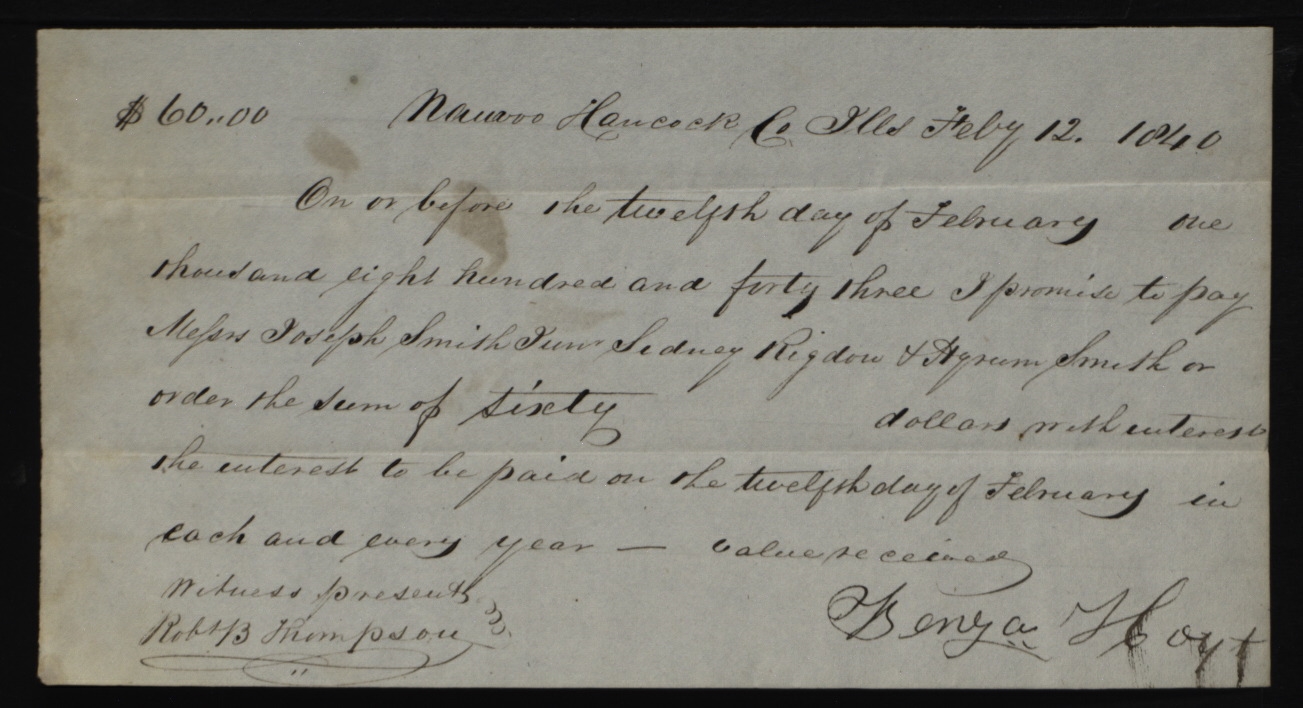 $60,,00 Nauvoo Hancock Co. Ills Feby 12. 1840
On or before the twelfth day of February one
thousand eight hundred and forty three I promise to pay
Messrs Joseph Smith Junr Sidney Rigdon & Hyrum Smith or
order the sum of sixty dollars with interest
the interest to be paid on the twelfth day of February in
each and every year — value received
Witness present
Robt B Thompson
Benja Hoyt